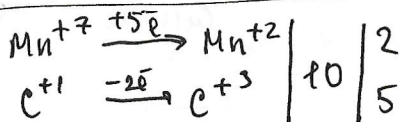 Mn⁺⁷ +5ē → Mn⁺² | 10 | 2
C⁺¹ -2ē → C⁺³ | 10 | 5